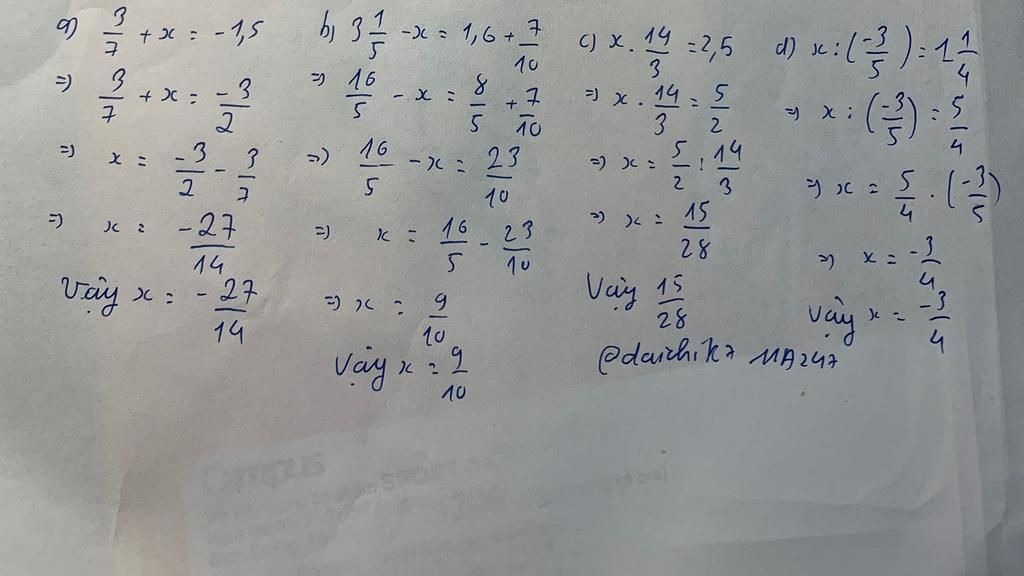 a) 3/7 + x = -1,5
=) 3/7 + x = -3/2
=) x = -3/2 - 3/7
=) x = -27/14
Vậy x = -27/14
b) 3 1/5 - x = 1,6 + 7/10
=) 16/5 - x = 8/5 + 7/10
=) 16/5 - x = 23/10
=) x = 16/5 - 23/10
=) x = 9/10
Vậy x = 9/10
c) x . 14/3 = 2,5
=) x . 14/3 = 5/2
=) x = 5/2 : 14/3
=) x = 15/28
Vậy 15/28
d) x : (-3/5) = 1 1/4
=) x : (-3/5) = 5/4
=) x = 5/4 . (-3/5)
=) x = -3/4
Vậy x = -3/4
@daichik7 11A247
Campus